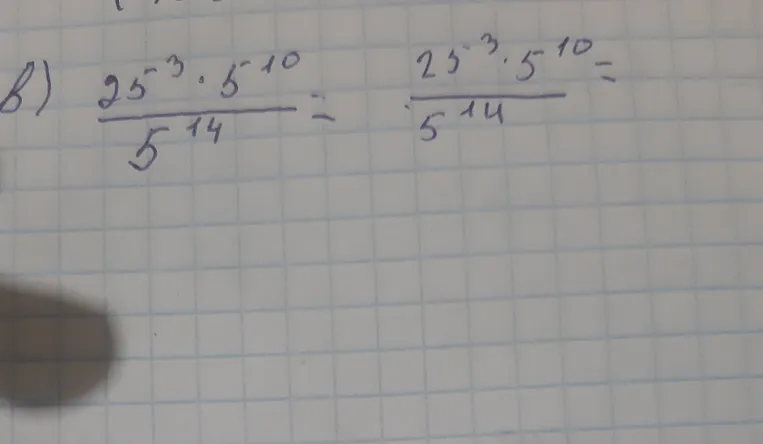 в) \frac{25^3 \cdot 5^{10}}{5^{14}} = \frac{25^3 \cdot 5^{10}}{5^{14}} =